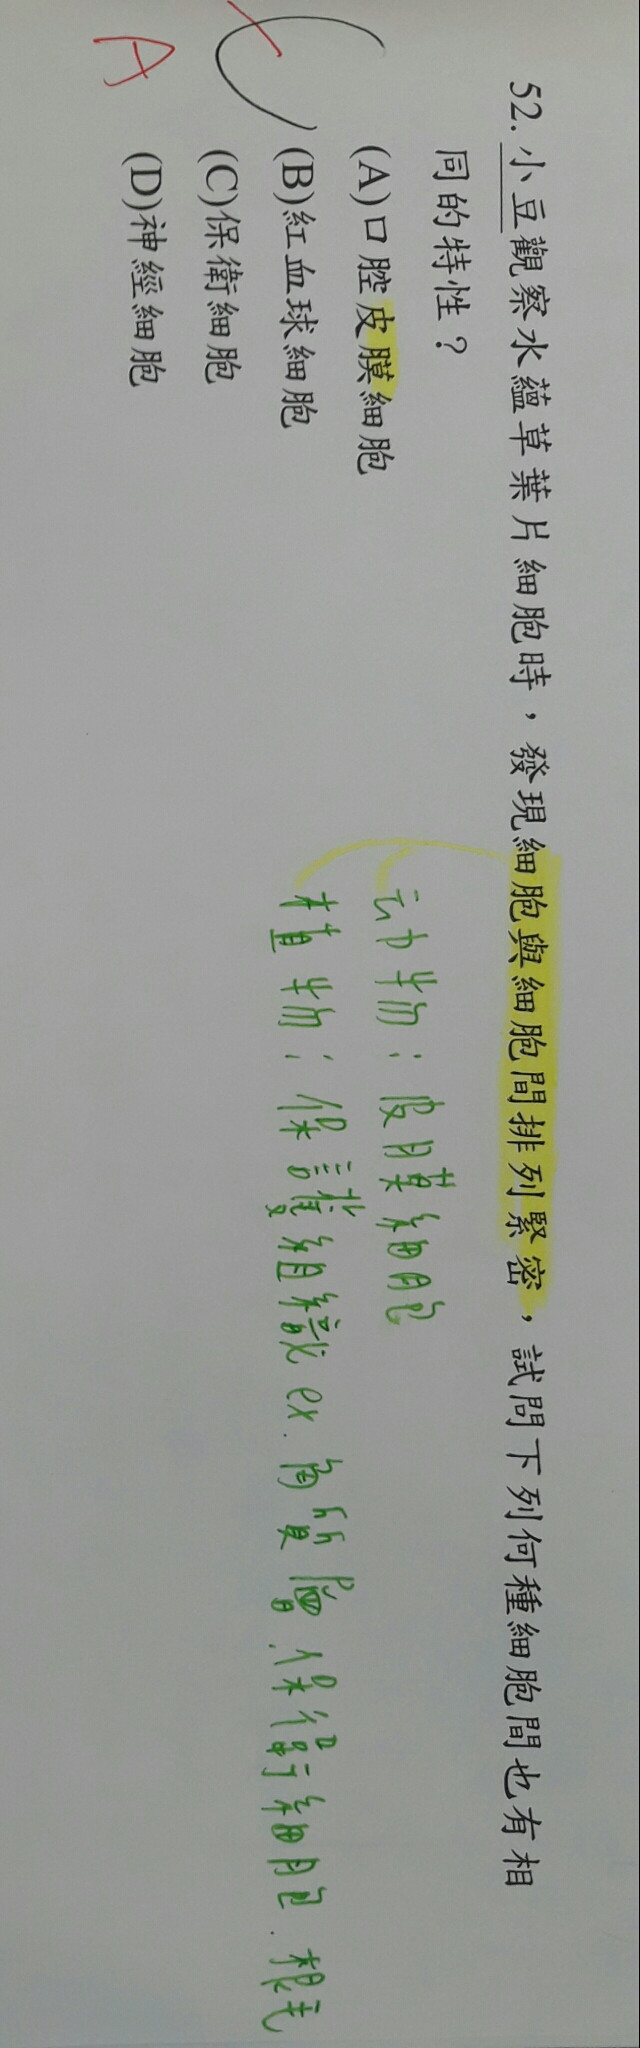 52. 小豆觀察水蘊草葉片細胞時，發現細胞與細胞間排列緊密，試問下列何種細胞間也有相
同的特性？
(A)口腔皮膜細胞
(B)紅血球細胞
(C)保衛細胞
(D)神經細胞
A
动物：皮膜細胞
植物：保護組織 ex. 角質層、保衛細胞、根毛